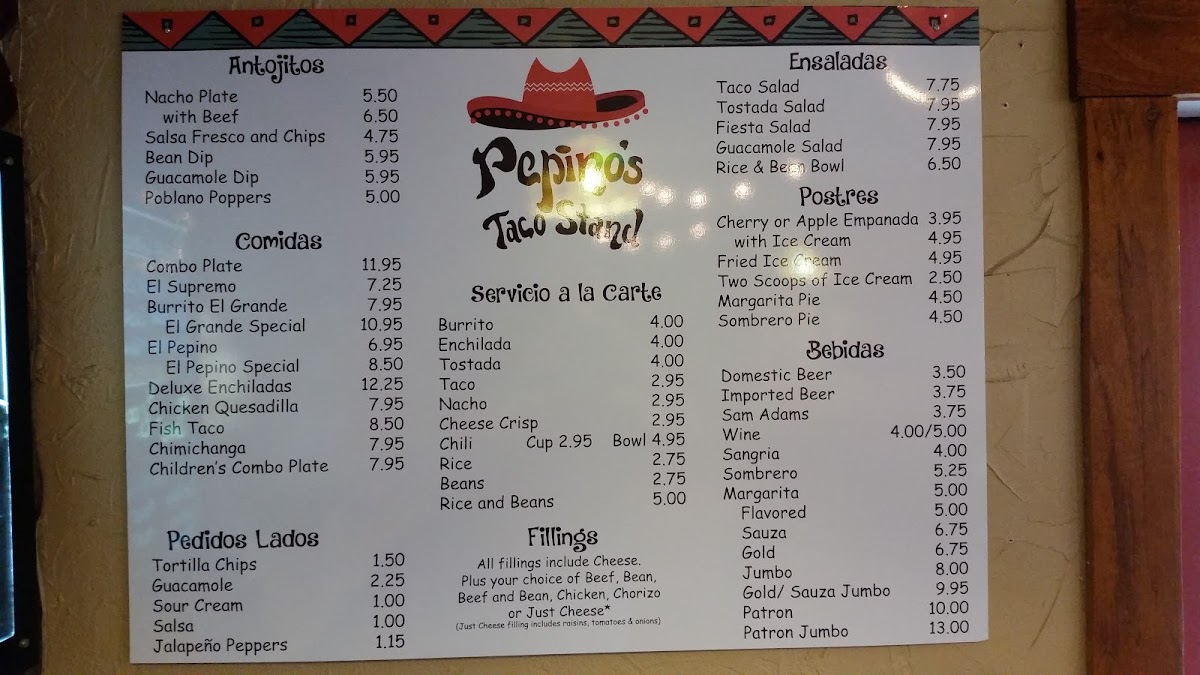 Antojitos
Nacho Plate 5.50
with Beef 6.50
Salsa Fresco and Chips 4.75
Bean Dip 5.95
Guacamole Dip 5.95
Poblano Poppers 5.00
Comidas
Combo Plate 11.95
El Supremo 7.25
Burrito El Grande 7.95
El Grande Special 10.95
El Pepino 6.95
El Pepino Special 8.50
Deluxe Enchiladas 12.25
Chicken Quesadilla 7.95
Fish Taco 8.50
Chimichanga 7.95
Children's Combo Plate 7.95
Pedidos Lados
Tortilla Chips 1.50
Guacamole 2.25
Sour Cream 1.00
Salsa 1.00
Jalapeño Peppers 1.15
Pepino's
Taco Stand
Servicio a la Carte
Burrito 4.00
Enchilada 4.00
Tostada 4.00
Taco 2.95
Nacho 2.95
Cheese Crisp 2.95
Chili Cup 2.95 Bowl 4.95
Rice 2.75
Beans 2.75
Rice and Beans 5.00
Fillings
All fillings include Cheese.
Plus your choice of Beef, Bean,
Beef and Bean, Chicken, Chorizo
or Just Cheese*
(Just Cheese filling includes raisins, tomatoes & onions)
Ensaladas
Taco Salad 7.75
Tostada Salad 7.95
Fiesta Salad 7.95
Guacamole Salad 7.95
Rice & Bean Bowl 6.50
Postres
Cherry or Apple Empanada 3.95
with Ice Cream 4.95
Fried Ice Cream 4.95
Two Scoops of Ice Cream 2.50
Margarita Pie 4.50
Sombrero Pie 4.50
Bebidas
Domestic Beer 3.50
Imported Beer 3.75
Sam Adams 3.75
Wine 4.00/5.00
Sangria 4.00
Sombrero 5.25
Margarita 5.00
Flavored 5.00
Sauza 6.75
Gold 6.75
Jumbo 8.00
Gold/ Sauza Jumbo 9.95
Patron 10.00
Patron Jumbo 13.00